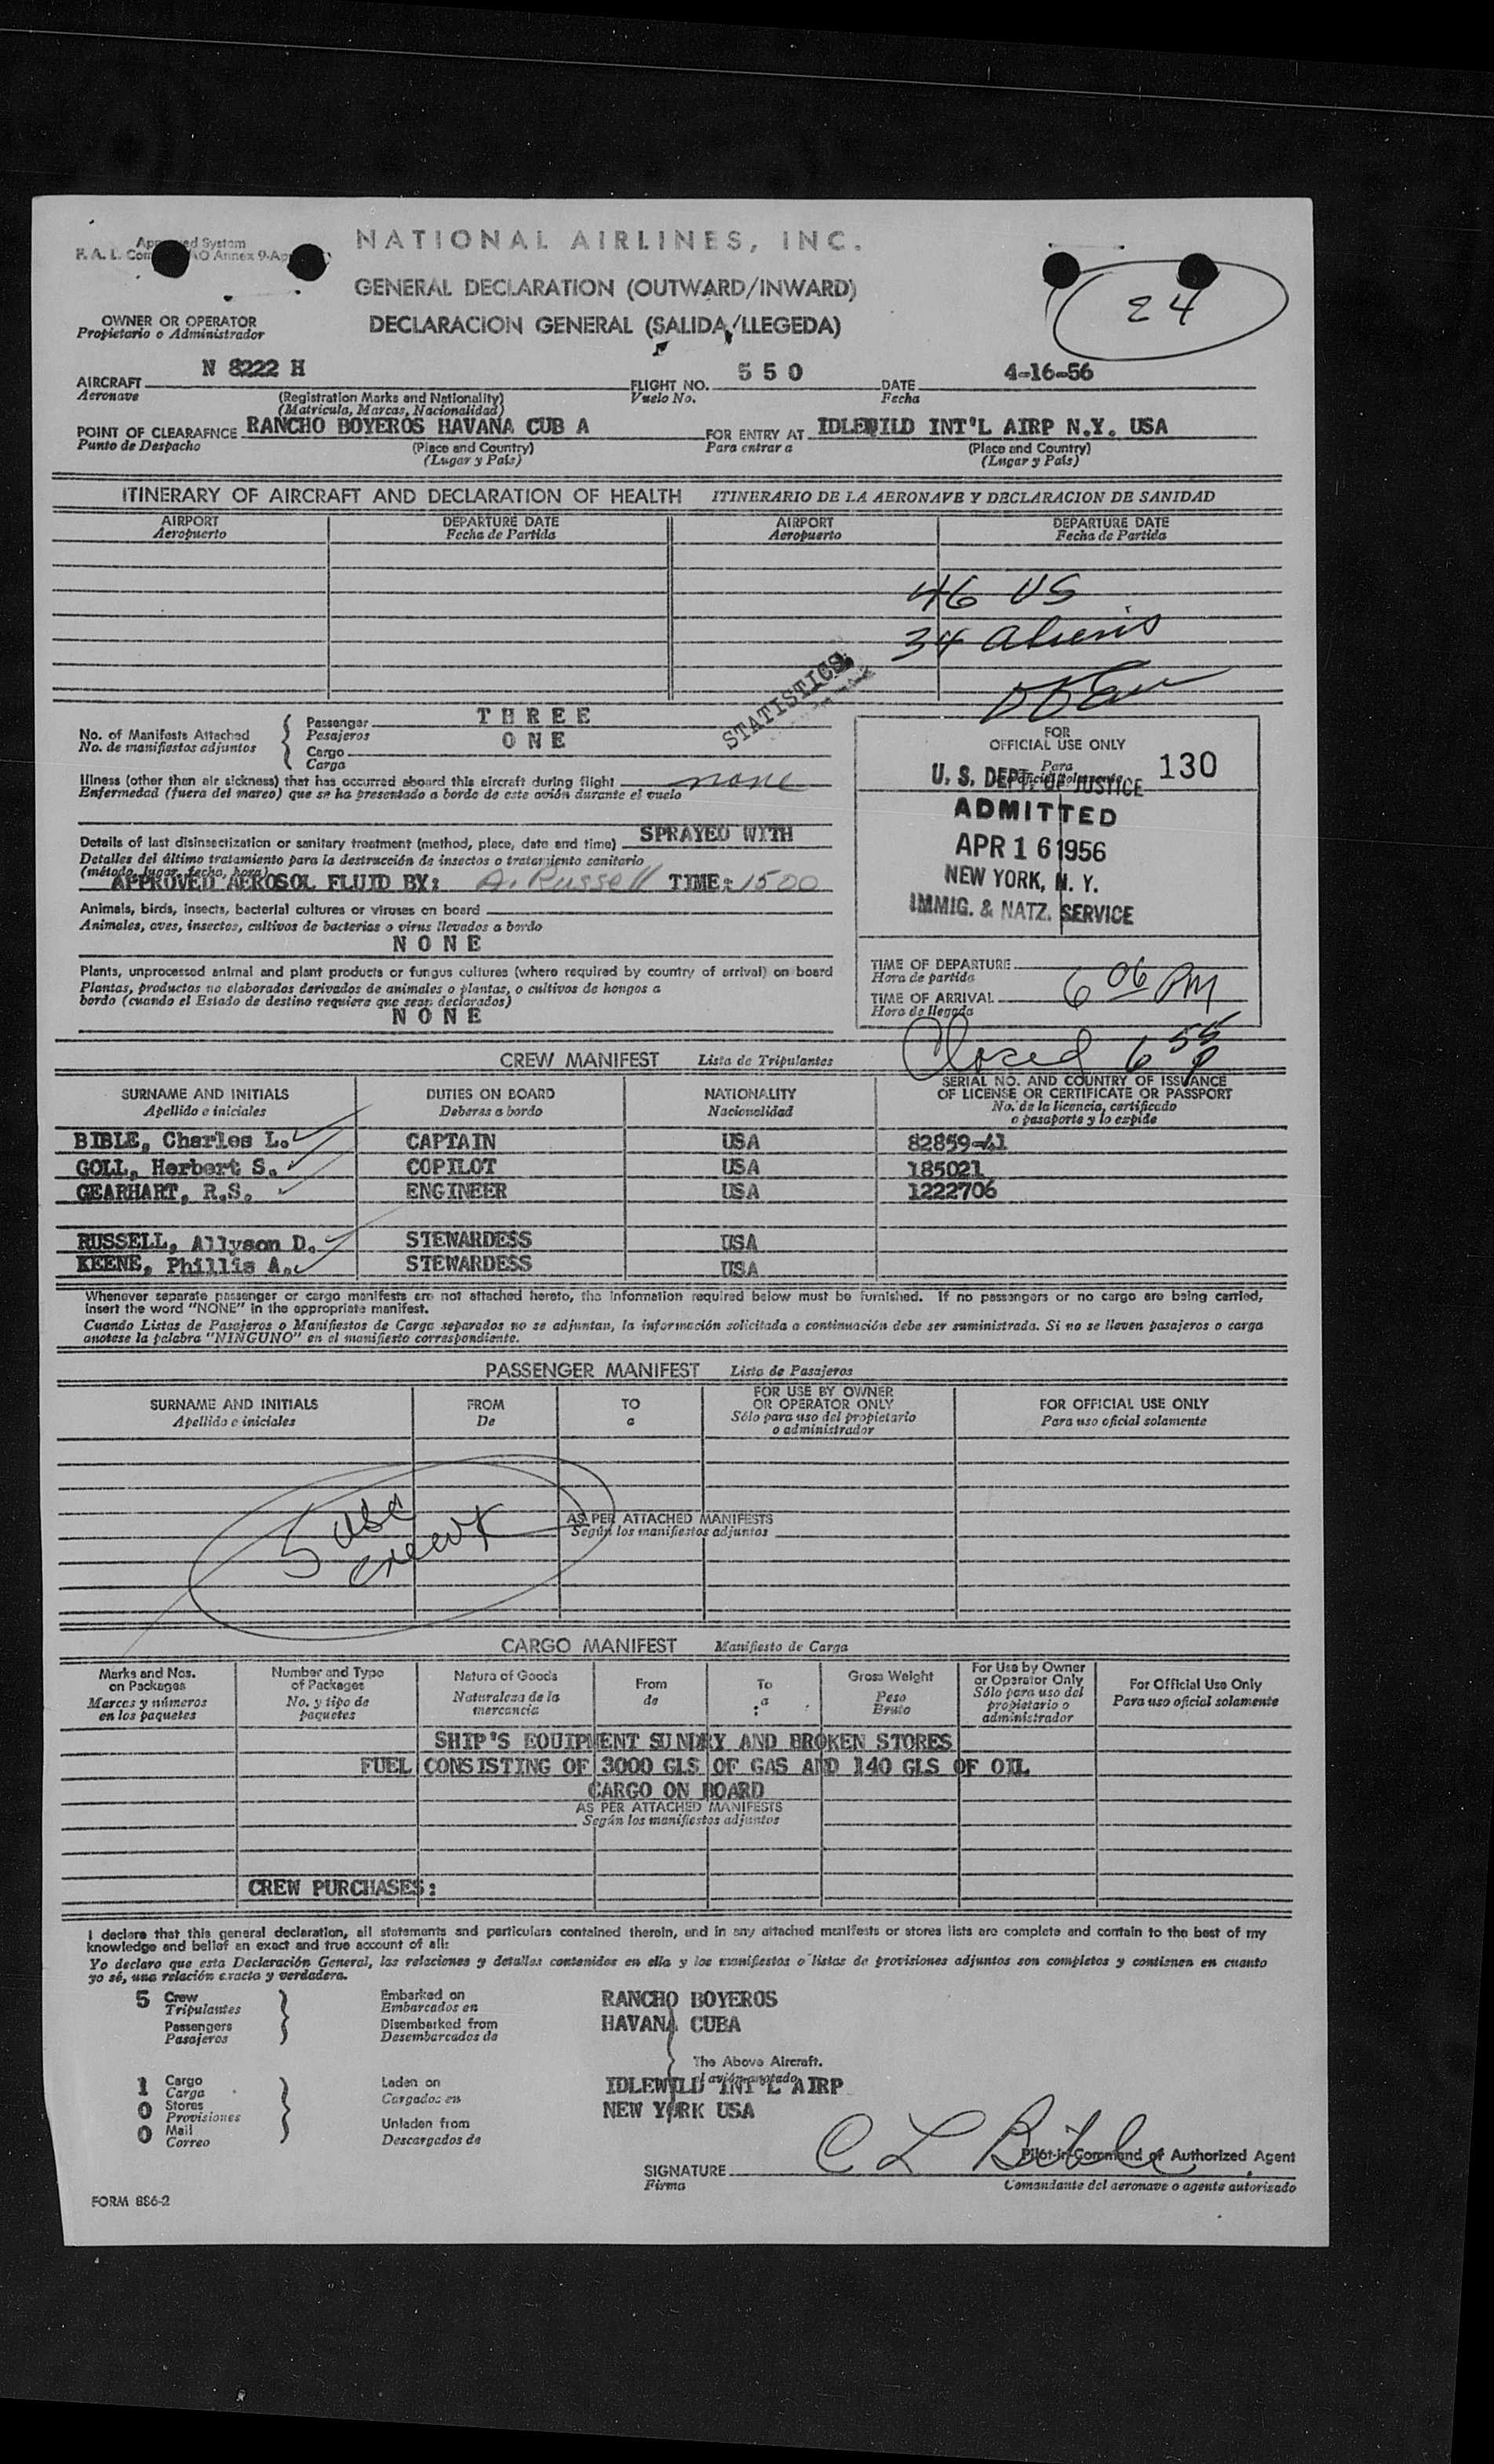 Approved System
F. A. L. Com ICAO Annex 9-Ap
NATIONAL AIRLINES, INC.
GENERAL DECLARATION (OUTWARD/INWARD)
DECLARACION GENERAL (SALIDA/LLEGEDA)
24
OWNER OR OPERATOR
Propietario o Administrador
AIRCRAFT N 8222 H FLIGHT NO. 5 5 0 DATE 4-16-56
Aeronave (Registration Marks and Nationality) Vuelo No. Fecha
(Matricula, Marcas, Nacionalidad)
POINT OF CLEARAFNCE RANCHO BOYEROS HAVANA CUB A FOR ENTRY AT IDLEWILD INT'L AIRP N.Y. USA
Punto de Despacho (Place and Country) Para entrar a (Place and Country)
(Lugar y País) (Lugar y País)
ITINERARY OF AIRCRAFT AND DECLARATION OF HEALTH ITINERARIO DE LA AERONAVE Y DECLARACION DE SANIDAD
AIRPORT DEPARTURE DATE AIRPORT DEPARTURE DATE
Aeropuerto Fecha de Partida Aeropuerto Fecha de Partida
46 US
34 Aliens
STATISTICS
No. of Manifests Attached Passenger THREE
No. de manifiestos adjuntos Pasajeros
Cargo ONE
Carga
Illness (other than air sickness) that has occurred aboard this aircraft during flight none
Enfermedad (fuera del mareo) que se ha presentado a bordo de este avión durante el vuelo
Details of last disinsectization or sanitary treatment (method, place, date and time) SPRAYED WITH
Detalles del último tratamiento para la destrucción de insectos o tratamiento sanitario
(método, lugar, fecha, hora)
APPROVED AEROSOL FLUID BY: A. Russell TIME: 1500
Animals, birds, insects, bacterial cultures or viruses on board
Animales, aves, insectos, cultivos de bacterias o virus llevados a bordo
NONE
Plants, unprocessed animal and plant products or fungus cultures (where required by country of arrival) on board
Plantas, productos no elaborados derivados de animales o plantas, o cultivos de hongos a
bordo (cuando el Estado de destino requiera que sean declarados)
NONE
FOR
OFFICIAL USE ONLY
Para
oficial solamente
130
U. S. DEPT. OF JUSTICE
ADMITTED
APR 16 1956
NEW YORK, N. Y.
IMMIG. & NATZ. SERVICE
TIME OF DEPARTURE
Hora de partida
TIME OF ARRIVAL 6 06 PM
Hora de llegada
Closed 6 55 P
CREW MANIFEST Lista de Tripulantes
SURNAME AND INITIALS DUTIES ON BOARD NATIONALITY SERIAL NO. AND COUNTRY OF ISSVANCE
OF LICENSE OR CERTIFICATE OR PASSPORT
Apellido e iniciales Deberas a bordo Nacionalidad No. de la licencia, certificado
o pasaporte y lo expide
BIBLE, Charles L. CAPTAIN USA 82859-41
GOLL, Herbert S. COPILOT USA 185021
GEARHART, R.S. ENGINEER USA 1222706
RUSSELL, Allyson D. STEWARDESS USA
KEENE, Phillis A. STEWARDESS USA
Whenever separate passenger or cargo manifests are not attached hereto, the information required below must be furnished. If no passengers or no cargo are being carried,
insert the word "NONE" in the appropriate manifest.
Cuando Listas de Pasajeros o Manifiestos de Carga separados no se adjuntan, la información solicitada a continuación debe ser suministrada. Si no se lleven pasajeros o carga
anotese la palabra "NINGUNO" en el manifiesto correspondiente.
PASSENGER MANIFEST Lista de Pasajeros
SURNAME AND INITIALS FROM TO FOR USE BY OWNER
OR OPERATOR ONLY FOR OFFICIAL USE ONLY
Apellido e iniciales De a Sólo para uso del propietario
o administrador Para uso oficial solamente
5 usa
crew
AS PER ATTACHED MANIFESTS
Según los manifiestos adjuntos
CARGO MANIFEST Manifiesto de Carga
Marks and Nos.
on Packages
Marcas y números
en los paquetes
Number and Type
of Packages
No. y tipo de
paquetes
Nature of Goods
Naturaleza de la
mercancia
From
de
To
a
Gross Weight
Peso
Bruto
For Use by Owner
or Operator Only
Sólo para uso del
propietario o
administrador
For Official Use Only
Para uso oficial solamente
SHIP'S EQUIPMENT SUNDRY AND BROKEN STORES
FUEL CONSISTING OF 3000 GLS OF GAS AND 140 GLS OF OIL
CARGO ON BOARD
AS PER ATTACHED MANIFESTS
Según los manifiestos adjuntos
CREW PURCHASES:
I declare that this general declaration, all statements and particulars contained therein, and in any attached manifests or stores lists are complete and contain to the best of my
knowledge and belief an exact and true account of all:
Yo declaro que esta Declaración General, las relaciones y detalles contenidos en ella y los manifiestos o listas de provisiones adjuntos son completos y contienen en cuanto
yo sé, una relación exacta y verdadera.
5 Crew Embarked on RANCHO BOYEROS
Tripulantes Embarcados en
Passengers Disembarked from HAVANA CUBA
Pasajeros Desembarcados de
The Above Aircraft.
l avión anotado
1 Cargo Laden on IDLEWILD INT'L AIRP
Carga Cargados en
0 Stores NEW YORK USA
Provisiones Unladen from
0 Mail Descargados de
Correo
SIGNATURE C L Bible Pilot-in-Command of Authorized Agent
Firma Comandante del aeronave o agente autorizado
FORM 886-2